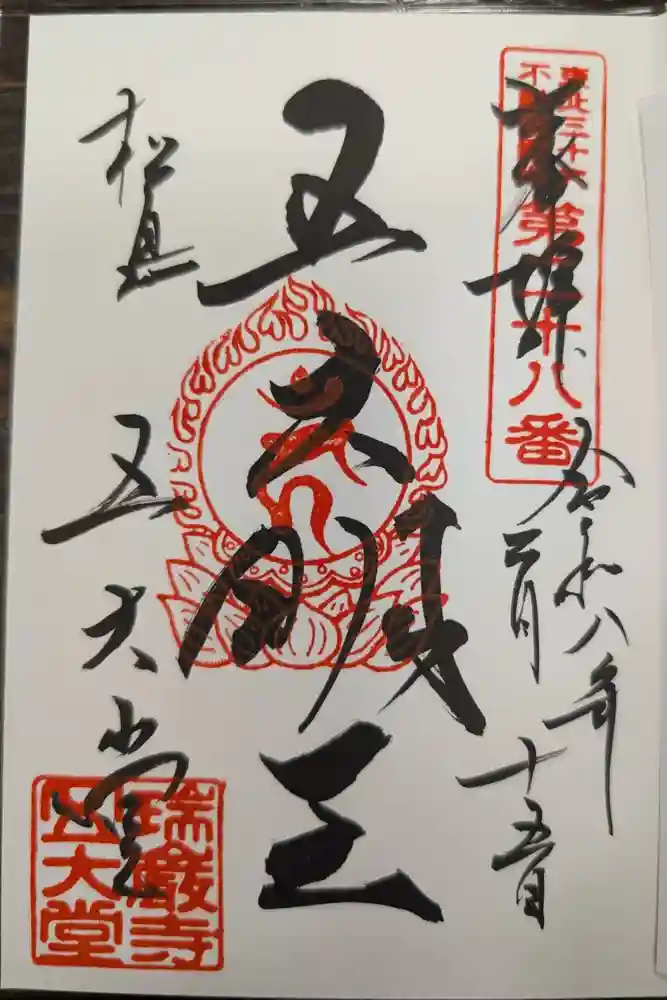 奉拝
東北三十六
不動尊第二十八番
令和八年
二月十五日
五大明王
松島
五大堂
瑞巌寺
五大堂